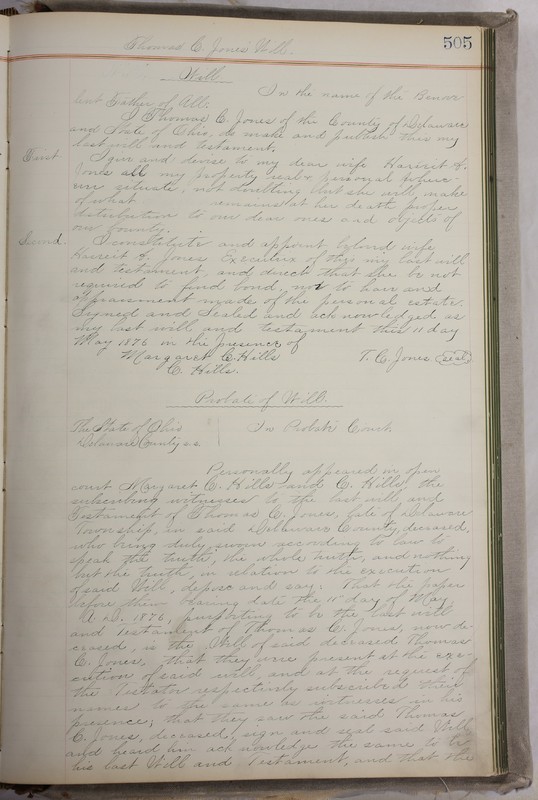 Thomas C. Jones Will.
505
Will
In the name of the Benevo
lent Father of All:
I Thomas C. Jones of the County of Delaware
and State of Ohio, do make and publish this my
last will and testament.
First. I give and devise to my dear wife Harriet A.
Jones all my property real & personal where-
ever situate, not doubting but she will make
of what remains at her death proper
distribution to our dear ones and objects of
our bounty.
Second. I constitute and appoint, beloved wife
Harriet A. Jones Executrix of this my last will
and testament, and direct that she be not
required to find bond, nor to have and
appraisment made of the personal estate.
Signed and Sealed and acknowledged as
my last will and testament this 11 day
May 1876 in the presence of
Margaret E. Hills T. C. Jones (seal)
C. Hills.
Probate of Will.
The State of Ohio
Delaware County s.s. In Probate Court
Personally appeared in open
court Margaret E. Hills and C. Hills, the
subscribing witnesses to the last will and
Testament of Thomas C. Jones, late of Delaware
Township, in said Delaware County, deceased,
who being duly sworn according to law to
speak the truth, the whole truth, and nothing
but the truth, in relation to the execution
of said Will, depose and say: That the paper
before them bearing date the 11th day of May
A.D. 1876, purporting to be the last will
and Testament of Thomas C. Jones, now de-
ceased, is the Will of said deceased Thomas
C. Jones, that they were present at the exe-
cution of said will, and at the request of
the Testator respectively subscribed their
names to the same as witnesses in his
presence; that they saw the said Thomas
C. Jones, deceased, sign and seal said Will
and heard him acknowledge the same to be
his last Will and Testament, and that the